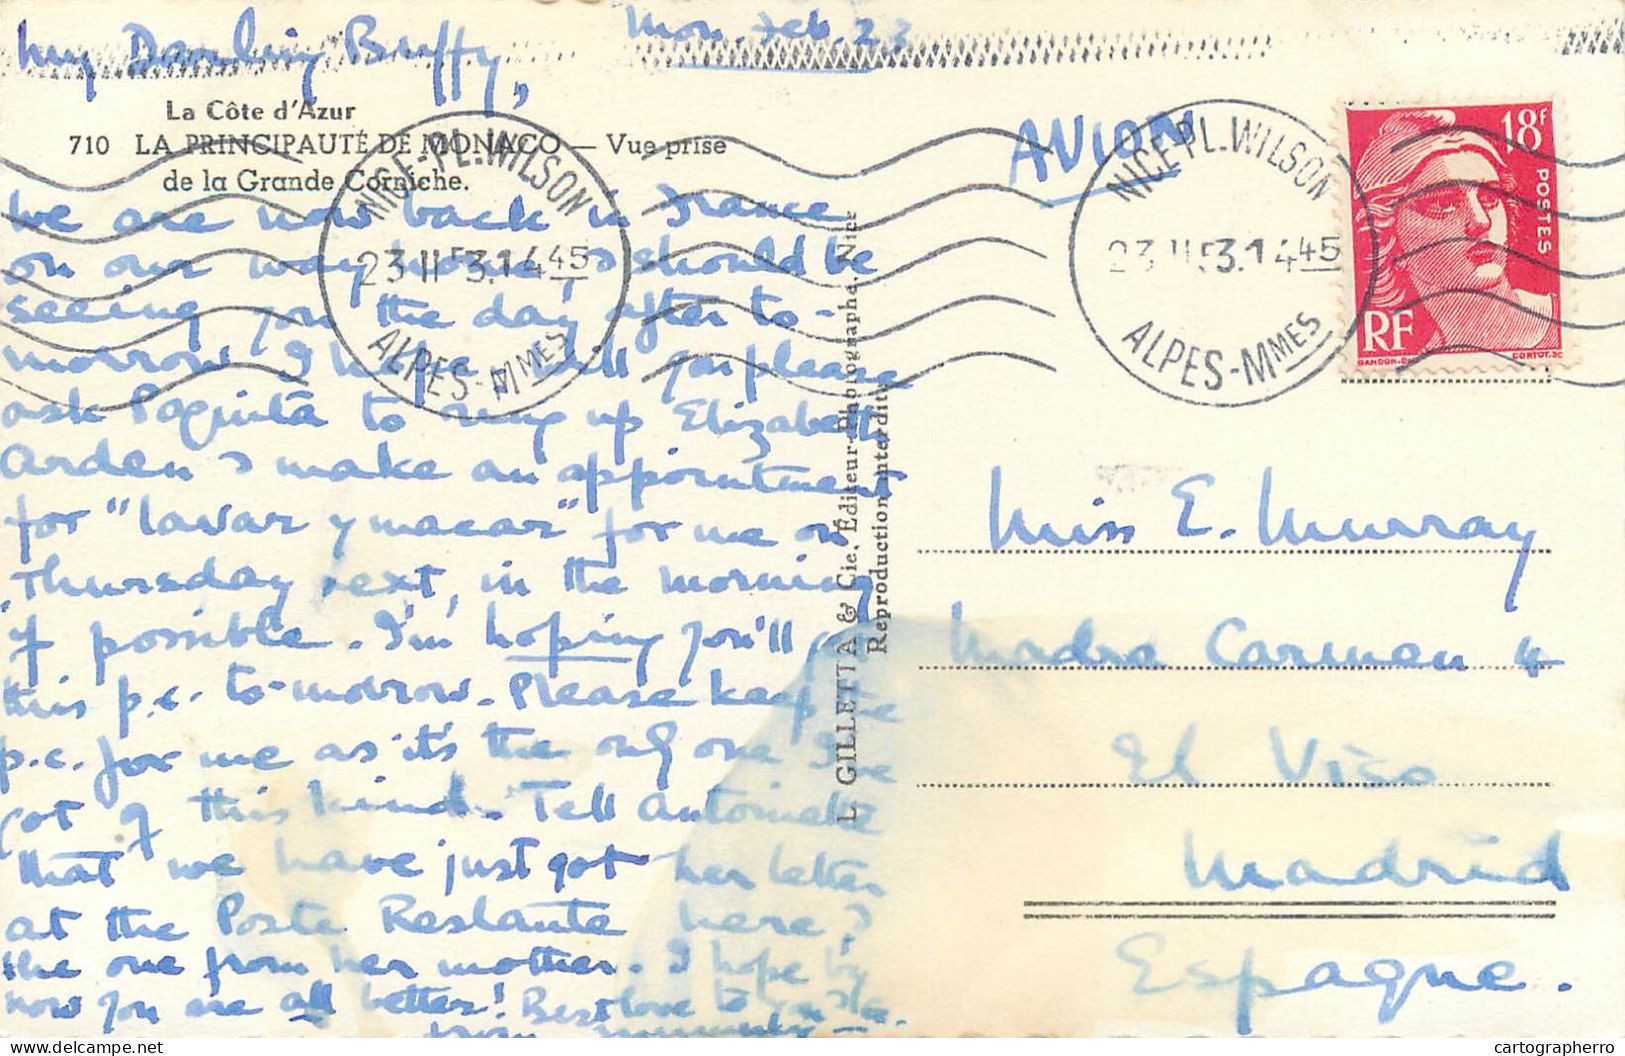 My Darling Buffy,
Mon. Feb. 23
La Côte d'Azur
710 LA PRINCIPAUTÉ DE MONACO — Vue prise
de la Grande Corniche.
We are now back in France
on our way home, & should be
seeing you the day after to-
morrow I hope. Will you please
ask Paquita to ring up Elizabeth
Arden & make an appointment
for "lavar y marcar" for me on
Thursday next, in the morning
if possible. I'm hoping you'll get
this p.c. to-morrow. Please keep the
p.c. for me as it's the only one I've
got of this kind. Tell Antoinette
that we have just got her letter
at the Poste Restante here &
the one from her mother. I hope by
now you are all better! Best love to you
from Mummy —
L. GILLETTA & Cie, Éditeur-Photographe, Nice
Reproduction interdite
AVION
NICE-PL.WILSON
23 II 53.14 45
ALPES-MMES
NICE PL.WILSON
23 II 53.14 45
ALPES-MMES
18F
POSTES
RF
GANDON
CORTOT.SC
Miss E. Murray
Madre Carmen 4
El Viso
Madrid
Espagne.
cartographerro